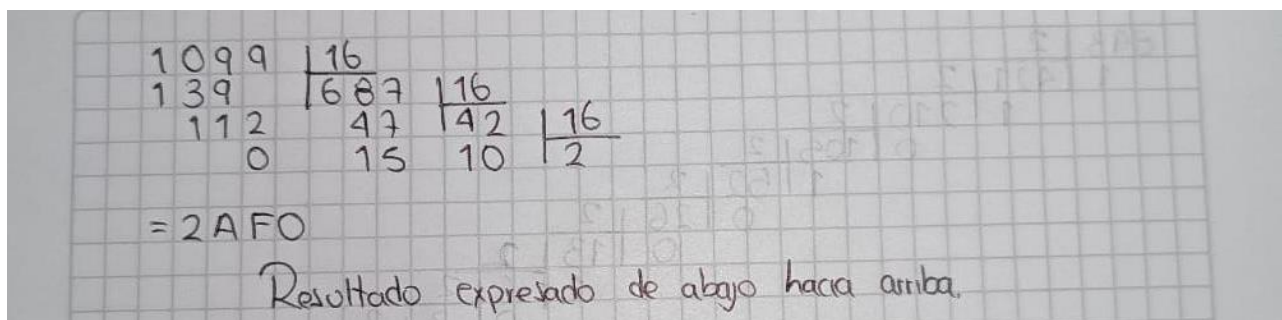 1099 16
139 687 16
112 47 42 16
0 15 10 2
= 2AF0
Resultado expresado de abajo hacia arriba.